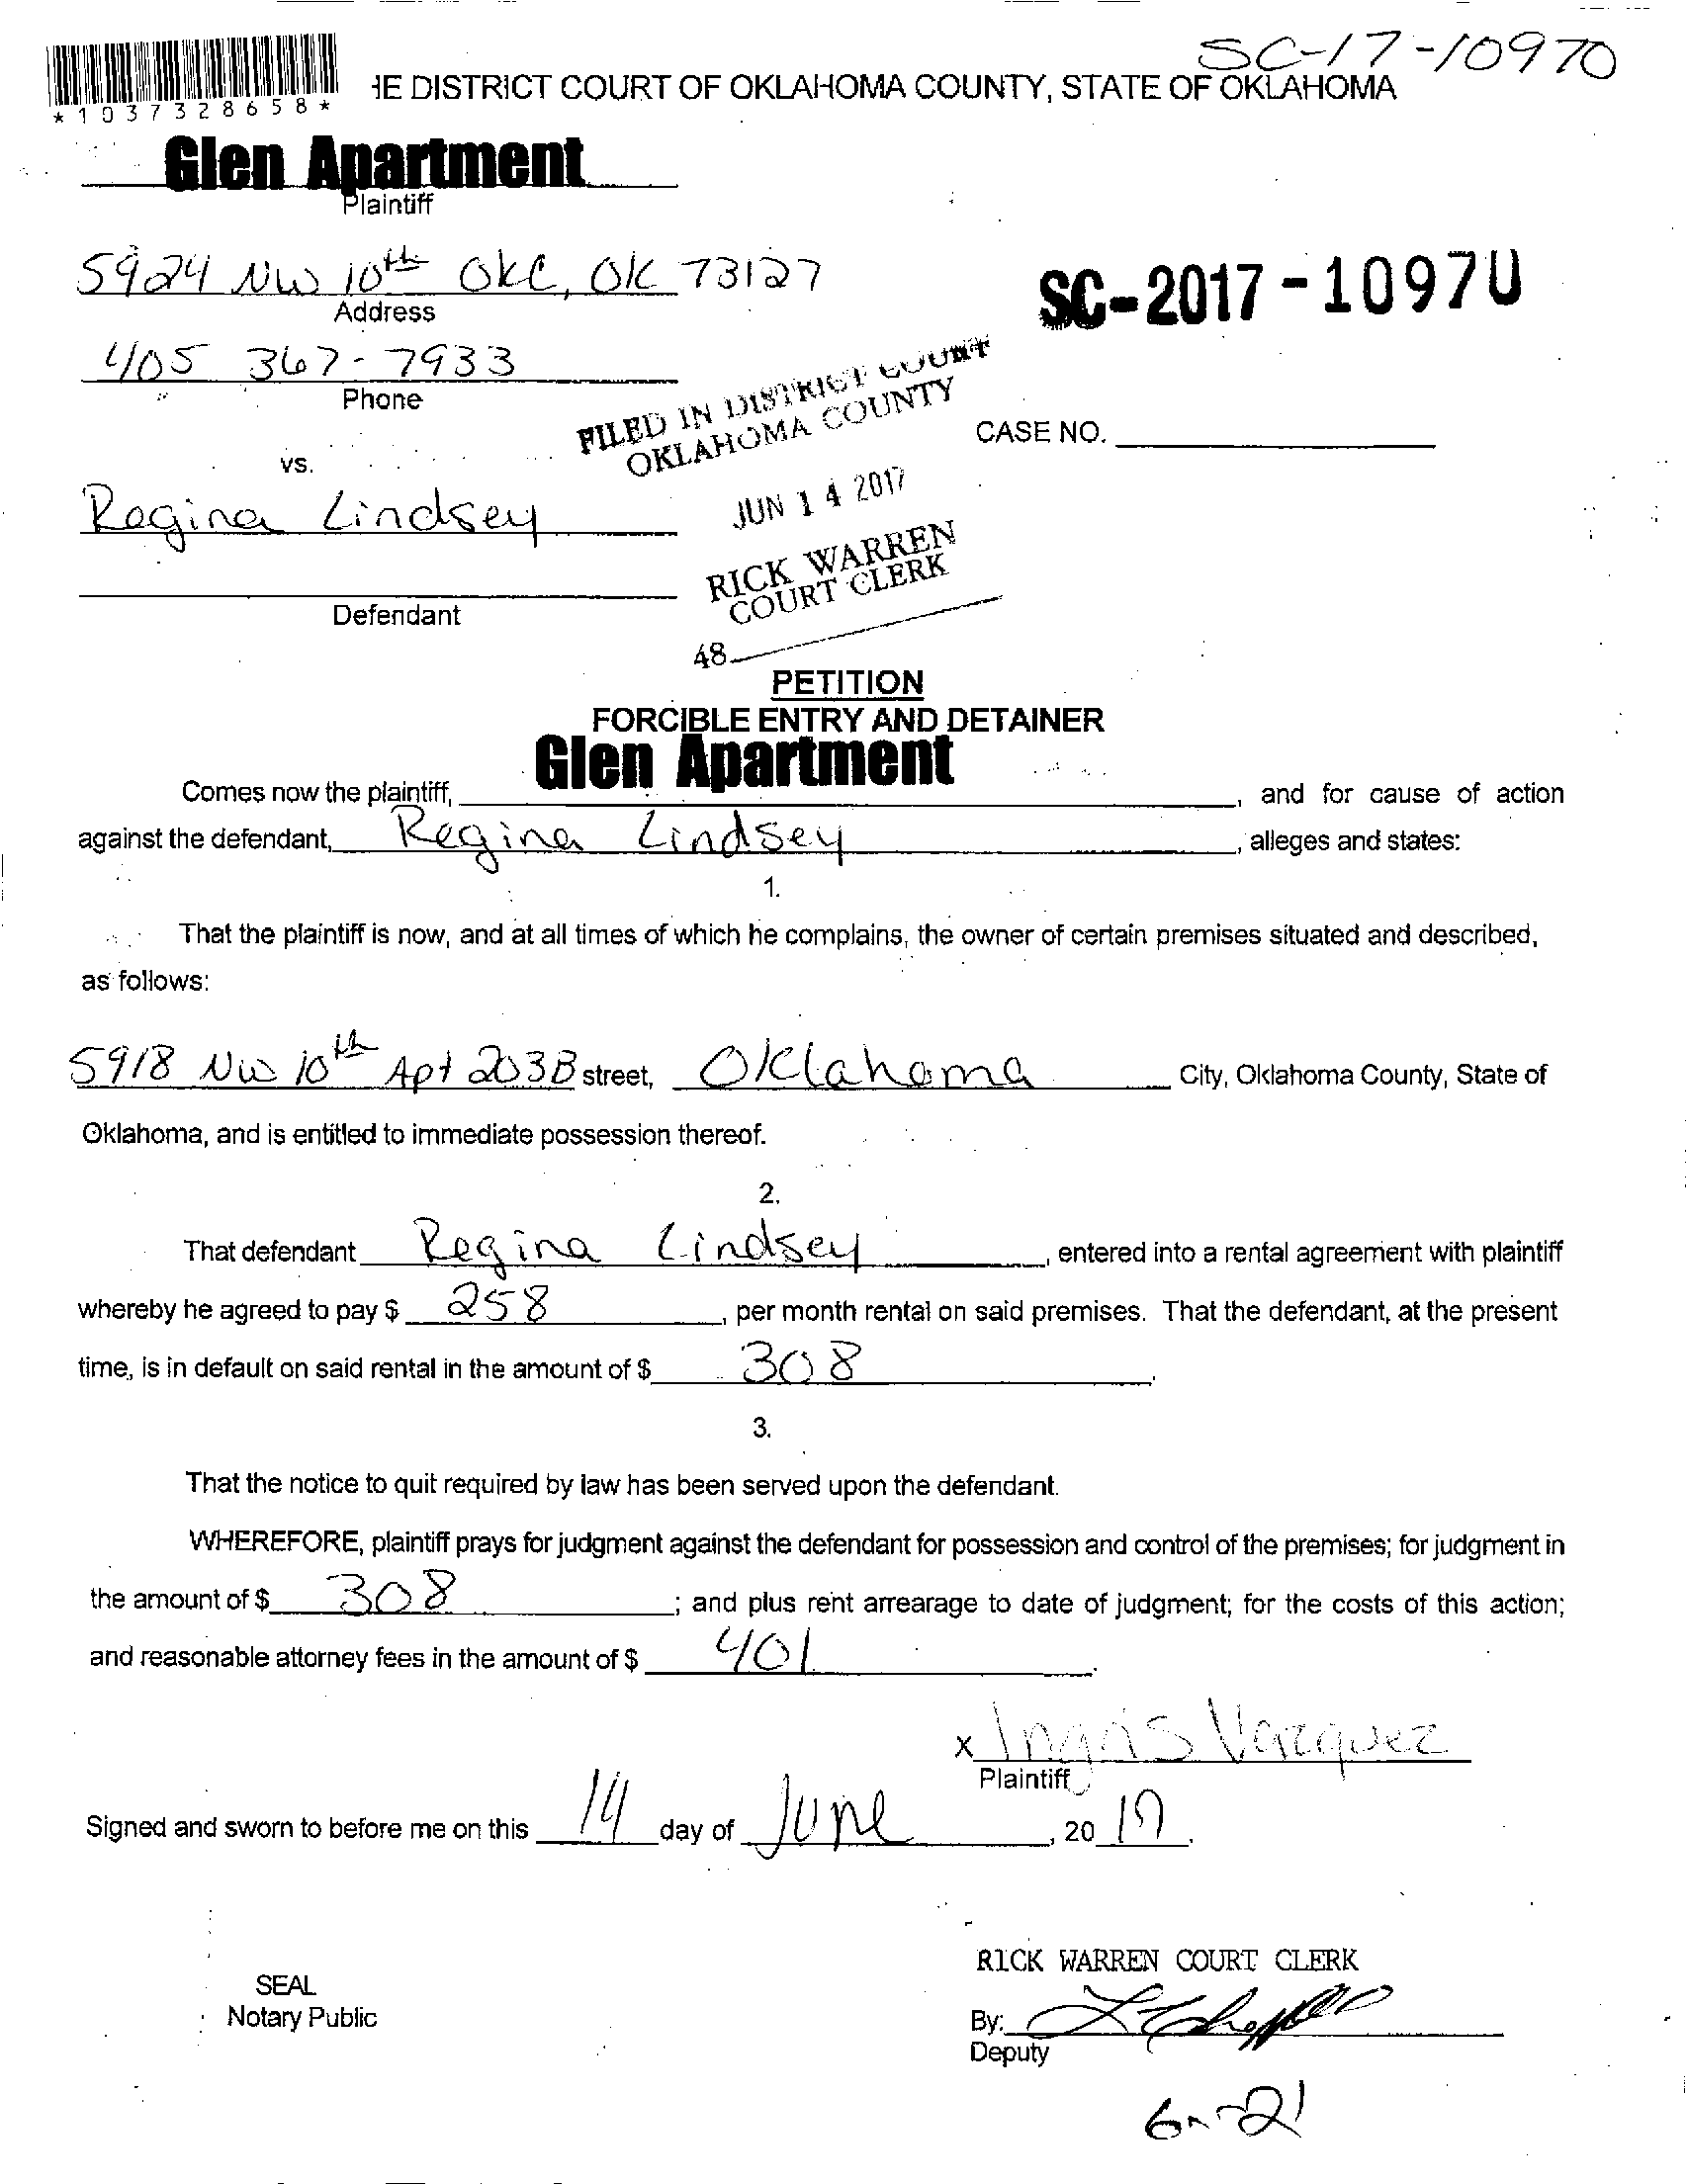 SC-17-10970
*1037328658*
HE DISTRICT COURT OF OKLAHOMA COUNTY, STATE OF OKLAHOMA
Glen Apartment
Plaintiff
5924 NW 10th OKC, OK 73127
Address
SC-2017-1097U
405 367-7933
Phone
FILED IN DISTRICT COURT
OKLAHOMA COUNTY
CASE NO.
vs.
JUN 14 2017
Regina Lindsey
RICK WARREN
COURT CLERK
Defendant
48
PETITION
FORCIBLE ENTRY AND DETAINER
Comes now the plaintiff, Glen Apartment, and for cause of action
against the defendant, Regina Lindsey, alleges and states:
1.
That the plaintiff is now, and at all times of which he complains, the owner of certain premises situated and described,
as follows:
5918 NW 10th Apt 203B street, Oklahoma City, Oklahoma County, State of
Oklahoma, and is entitled to immediate possession thereof.
2.
That defendant Regina Lindsey, entered into a rental agreement with plaintiff
whereby he agreed to pay $ 258, per month rental on said premises. That the defendant, at the present
time, is in default on said rental in the amount of $ 308.
3.
That the notice to quit required by law has been served upon the defendant.
WHEREFORE, plaintiff prays for judgment against the defendant for possession and control of the premises; for judgment in
the amount of $ 308; and plus rent arrearage to date of judgment; for the costs of this action;
and reasonable attorney fees in the amount of $ 401.
x Ingris Vazquez
Plaintiff
Signed and sworn to before me on this 14 day of June, 2017.
RICK WARREN COURT CLERK
SEAL
Notary Public
By:
Deputy
6-21